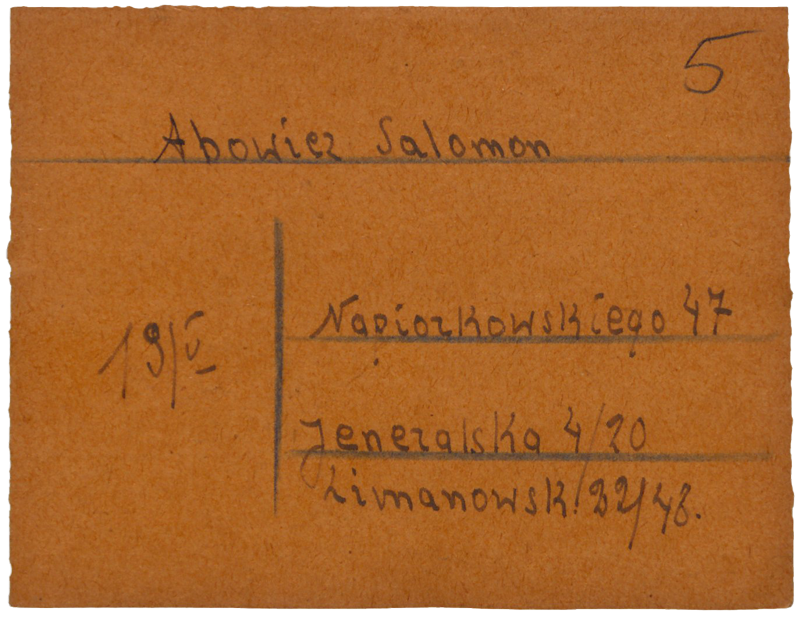 5
Abowicz Salomon
Napiorkowskiego 47
19/V
Jeneralska 4/20
Limanowsk. 22/48.